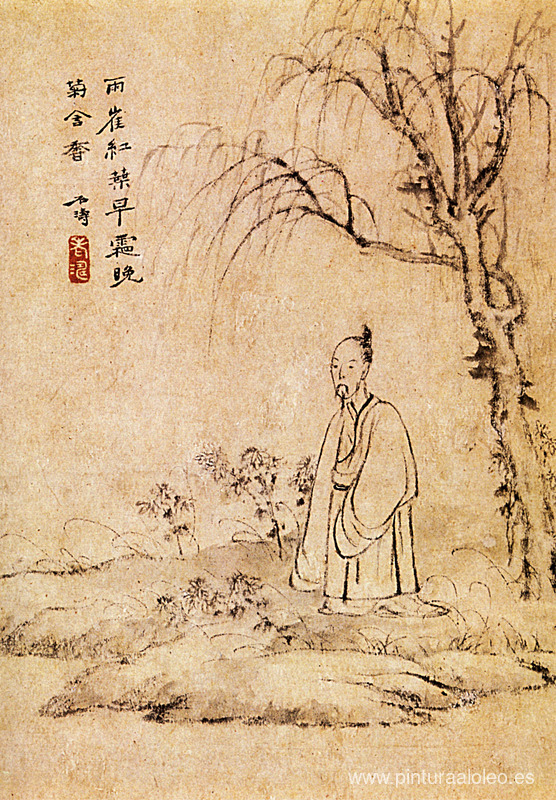 雨崔紅葉早霜晚
菊含香
石濤
老濤
www.pinturaaloleo.es